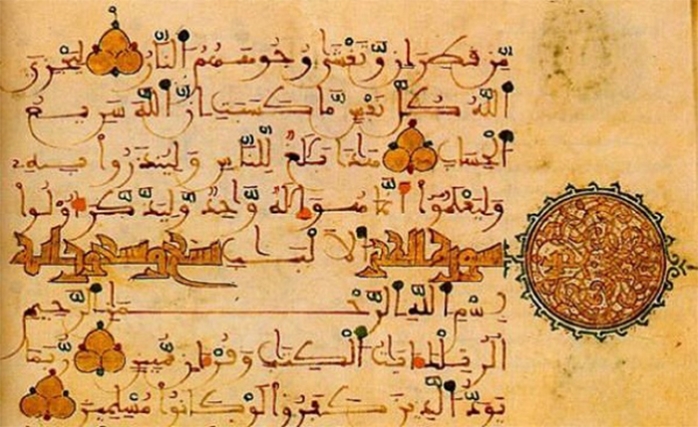 مِّن قَطِرَانٍ وَّتَغْشَىٰ وُجُوهَهُمُ النَّارُ لِيَجْزِيَ
اللَّهُ كُلَّ نَفْسٍ مَّا كَسَبَتْ إِنَّ اللَّهَ سَرِيعُ
الْحِسَابِ هَٰذَا بَلَٰغٌ لِّلنَّاسِ وَلِيُنذَرُوا بِهِ
وَلِيَعْلَمُوا أَنَّمَا هُوَ إِلَٰهٌ وَّاحِدٌ وَّلِيَذَّكَّرَ أُوْلُوا
سورة الحجر الَالْبَٰبِ تسع وتسعون اية
بِسْمِ اللَّهِ الرَّحْمَٰنِ الرَّحِيمِ
الٓر تِلْكَ ءَايَٰتُ الْكِتَٰبِ وَقُرْءَانٍ مُّبِينٍ رُّبَمَا
يَوَدُّ الَّذِينَ كَفَرُوا لَوْ كَانُوا مُسْلِمِينَ